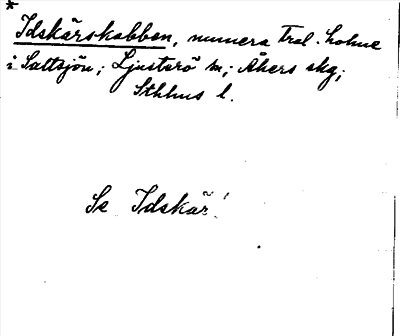 *
Idskärskobben, numera Tral-holme
i Saltsjön; Ljusterö sn; Åkers skg;
Sthlms l.
Se Idskär!